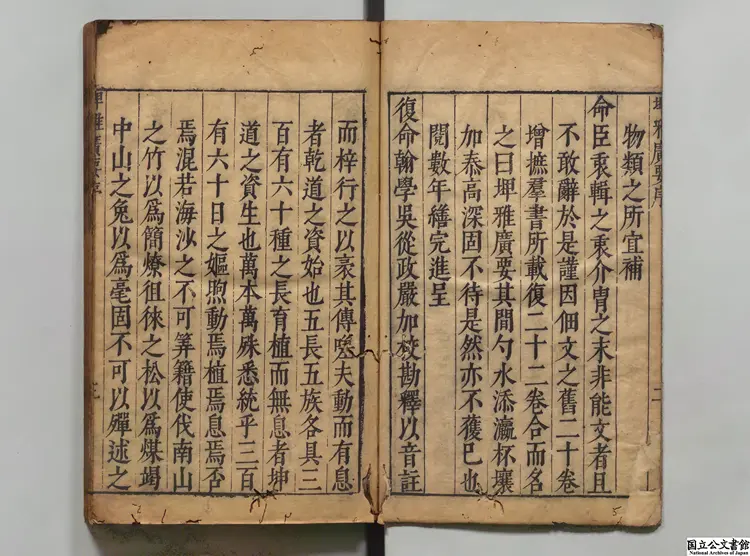 埤雅廣要序
二
物類之所宜補
命臣衷輯之衷介胄之末非能文者且
不敢辭於是謹因佃文之舊二十卷
增摭羣書所載復二十二卷合而名
之曰埤雅廣要其間勺水添瀛杯壤
加泰高深固不待是然亦不獲已也
閱數年繕完進呈
復命翰學吳從政嚴加校勘釋以音註
而梓行之以豪其傳噫夫動而有息
者乾道之資始也五長五族各具三
百有六十種之長育植而無息者坤
道之資生也萬本萬殊悉統乎三百
有六十日之嫗煦動焉植焉息焉否
焉混若海沙之不可筭籍使伐南山
之竹以爲簡燎徂徠之松以爲煤竭
中山之兔以爲毫固不可以殫述之
埤雅廣要序
国立公文書館
National Archives of Japan